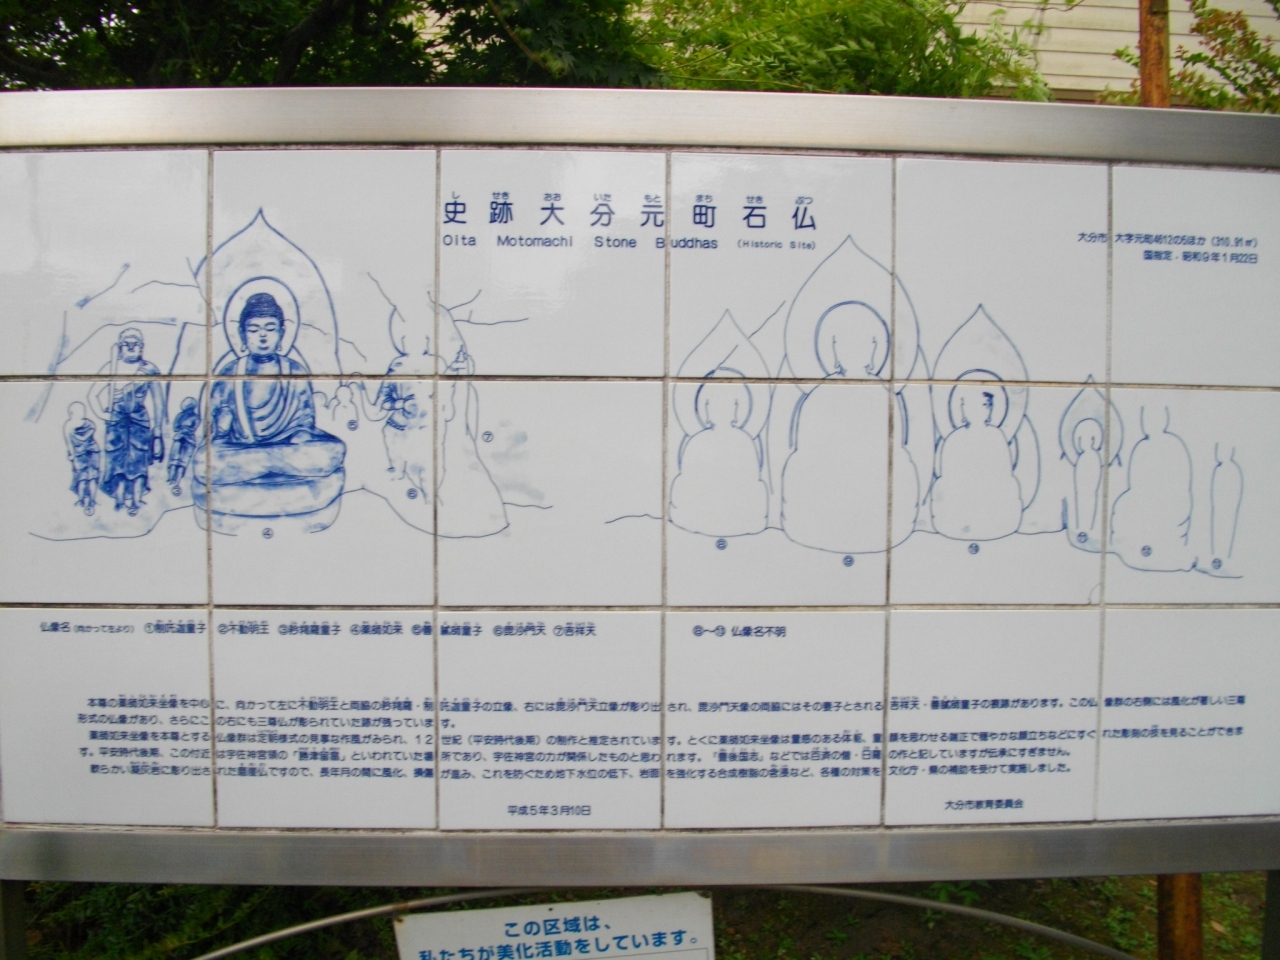 史跡大分元町石仏
しせきおおいたもとまちせきぶつ
Oita Motomachi Stone Buddhas (Historic Site)
大分市大字元町4612の5ほか (310.91㎡)
国指定・昭和9年1月22日
⑤
⑦
③
⑥
④
⑧
⑨
⑩
⑪
⑫
⑬
仏像名(向かって左より) ①制吒迦童子 ②不動明王 ③矜羯羅童子 ④薬師如来 ⑤善膩師童子 ⑥毘沙門天 ⑦吉祥天 ⑧〜⑬ 仏像名不明
本尊の薬師如来坐像を中心に、向かって左に不動明王と両脇の矜羯羅・制吒迦童子の立像、右には毘沙門天立像が彫り出され、毘沙門天像の両脇にはその妻子とされる吉祥天・善膩師童子の痕跡があります。この仏像群の右側には風化が著しい三尊
形式の仏像があり、さらにこの右にも三尊仏が彫られていた跡が残っています。
薬師如来坐像を本尊とする仏像群は定朝様式の見事な作風がみられ、12世紀(平安時代後期)の制作と推定されています。とくに薬師如来坐像は量感のある体躯、童顔を思わせる端正で穏やかな顔立ちなどにすぐれた彫刻の技を見ることができま
す。平安時代後期、この付近は宇佐神宮領の「勝津留畠」といわれていた場所であり、宇佐神宮の力が関係したものと思われます。「豊後国志」などでは百済の僧・日羅の作と記していますが伝承にすぎません。
軟らかい凝灰岩に彫り出された磨崖仏ですので、長年月の間に風化、損傷が進み、これを防ぐため地下水位の低下、岩面を強化する合成樹脂の含浸など、各種の対策を文化庁・県の補助を受けて実施しました。
平成5年3月10日
大分市教育委員会
この区域は、
私たちが美化活動をしています。